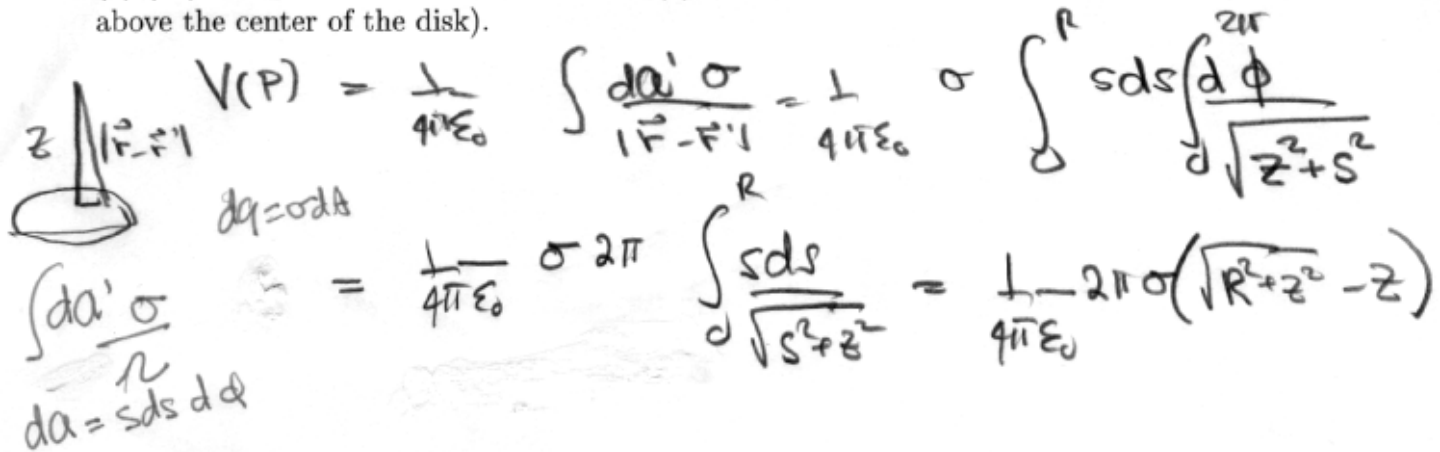 above the center of the disk).
V(P) = 1/(4πε₀) ∫ da' σ / |r⃗ - r⃗'| = 1/(4πε₀) σ ∫₀ᴿ sds ∫₀²π dϕ / √(z² + s²)
z |r⃗ - r⃗'|
dq = σdA
= 1/(4πε₀) σ 2π ∫₀ᴿ sds / √(s² + z²) = 1/(4πε₀) 2πσ(√(R² + z²) - z)
∫ da' σ / r
da = sds dϕ